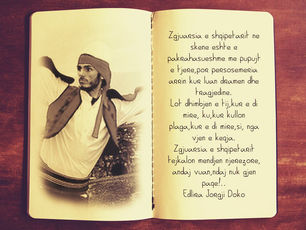 Zgjuarsia e shqipetarit ne
skene eshte e
pakrahasueshme me pupujt
e tjere,por persosemeria
arrin kur luan dramen dhe
tragjedine.
Lot dhimbjen e tij,kur e di
mire, ku,kur kullon
plaga,kur e di mire,si, nga
vjen e keqja.
Zgjuarsia e shqipetarit
tejkalon mendjen njerezore,
andaj vuan,ndaj nuk gjen
paqe!..
Edlira Jorgji Doko